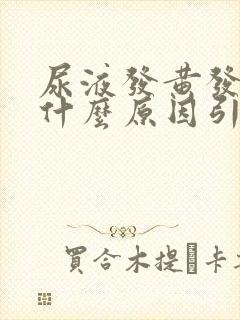 尿液發黃發
什麼原因引
買合木提 卡